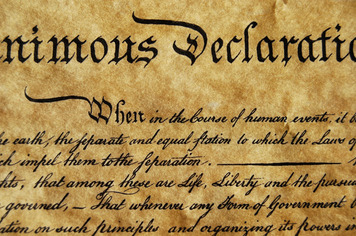 nimous Declaratio
When in the Course of human events, it b
he earth, the separate and equal station to which the Laws of
ch impel them to the separation.
hts, that among these are Life, Liberty and the pursui
governed, — That whenever any Form of Government b
ation on such principles and organizing its powers in